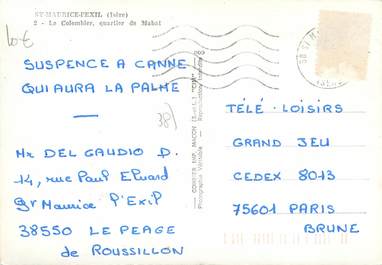 ST-MAURICE-l'EXIL (Isère)
2 - Le Colombier, quartier du Mahot
10€
SUSPENCE A CANNE
QUI AURA LA PALME
38)
Mr DEL GAUDIO D.
14, rue Paul Eluard
St Maurice l'Exil
38550 LE PEAGE
de ROUSSILLON
COMBIER IMP. MACON (S.-et-L.) "CIM"
Photographie Véritable - Reproduction interdite
TÉLÉ-LOISIRS
GRAND JEU
CEDEX 8013
75601 PARIS
BRUNE